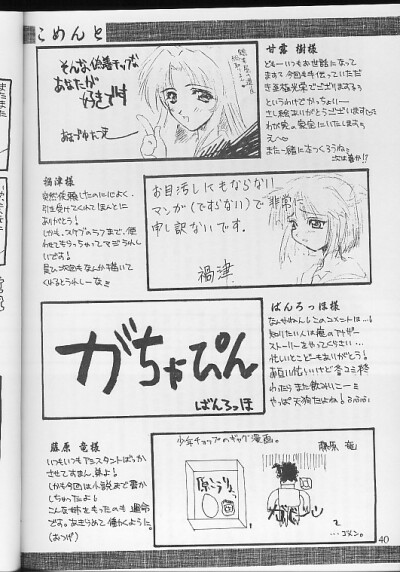 こめんと
そんな偽善チップの
あなたが
好きです
甘露 樹様
どもーいつもお世話になって
ます今回も手伝っていただ
き至極光栄でございまするぅ
というわけでかっちょいー
さし絵ありがとうございます
わが家の家宝にいたしますぅ
また一緒に本つくろうね
次は春か!?
禍津様
突然依頼したのに心よく
引き受けてくれてほんとに
ありがとう!
しかも、スケブのラフまで、使
わせてもらっちゃってマジうれし
いです!
お目汚しにもならない
マンガ(ですらない)で非常に
申し訳ないです。
禍津
ばんろっほ様
なんやねん!このコメントは…!
知りたい人は俺のアナザー
ストーリーをやってください…
忙しいとこどーもありがとう!
お互い忙しいけど冬コミ終
わったらまた飲みにこー!
やっぱ天狗だよね!
がちゃぴん
ばんろっほ
藤原 竜様
いつもいつもアシスタントばっか
させてすまん、弟よ!
しかも今回は小説まで書か
しちゃったよ!
こんな姉をもったのも運命
です。あきらめて働くように。
少年チョップのギャグ漫画。
藤原 竜
…ゴメン。
40